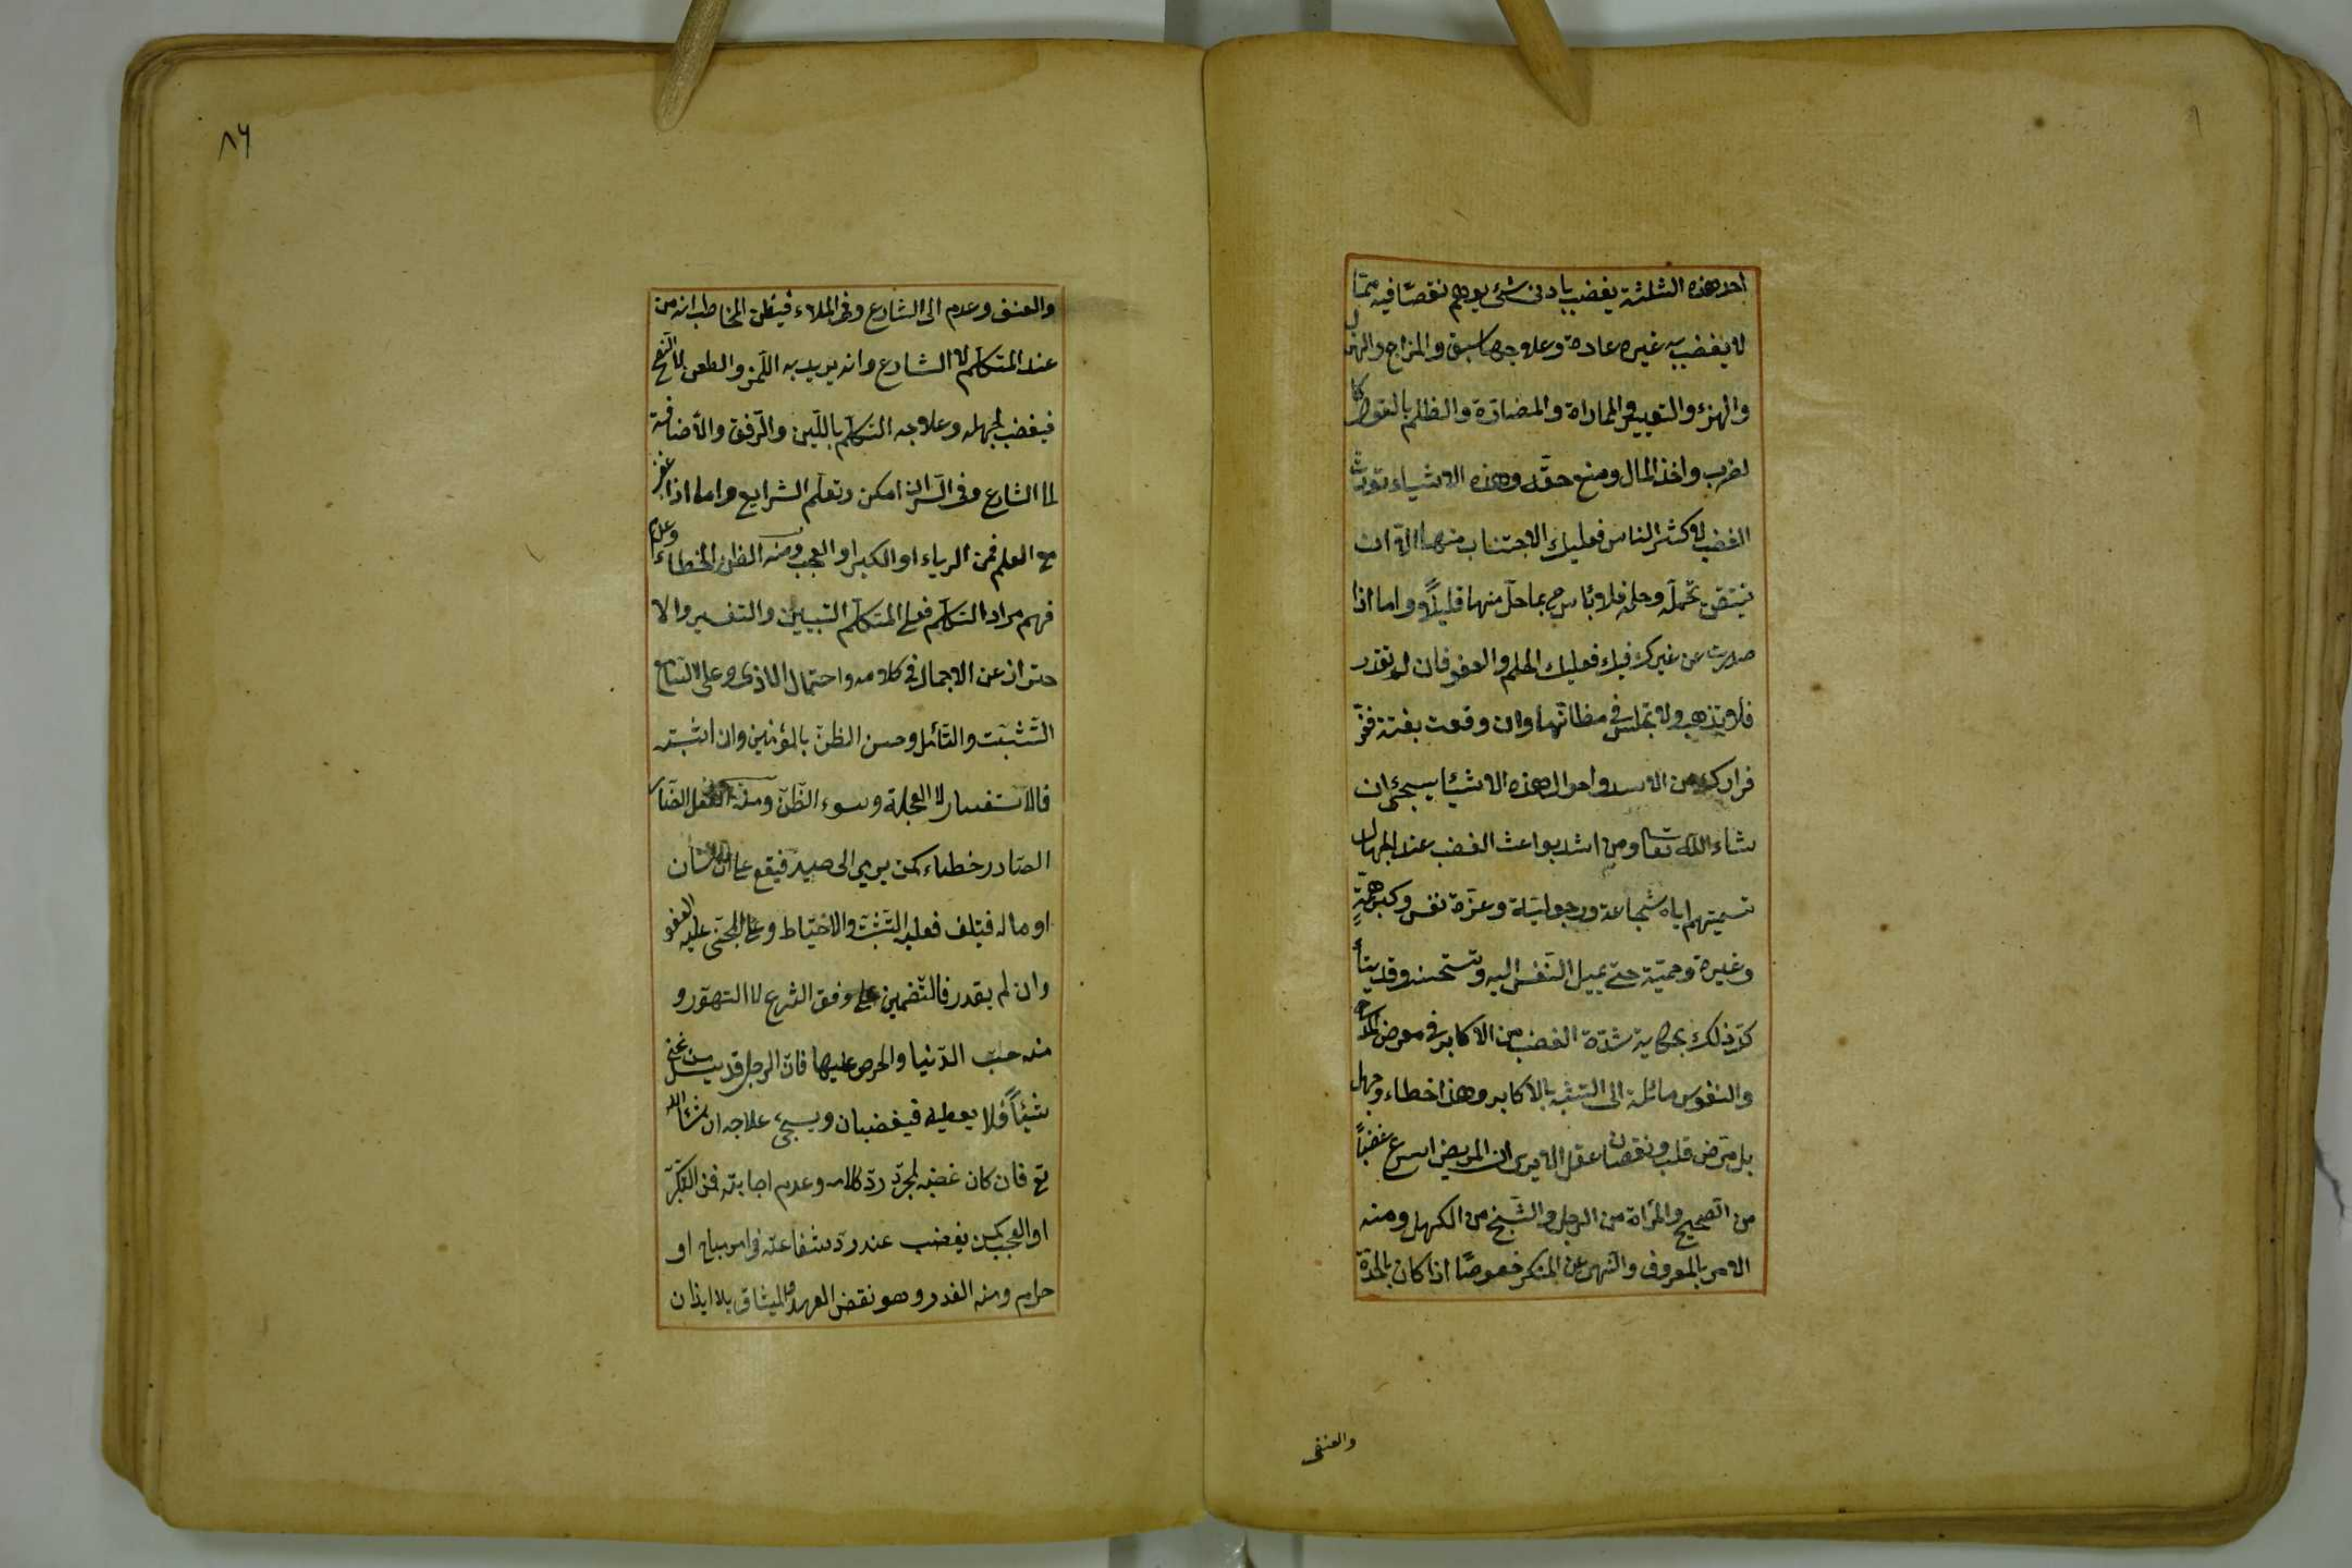 احد هذه الثلثة يغضب بادنى شئ يوهم نقصا فيه ممّا
لا يغضب به غيره عادة وعلاجها سبق والمزاح والهزل
والهزء والتعيير والمماراة والمضادّة والظلم بالقول كا
لضرب واخذ المال ومنع حقّه وهذه الاشياء تورث
الغضب لاكثر الناس فعليك الاجتناب منها الّا ان
تيقن تحمله وحلمه فلا بأس ح بما حلّ منها قليلاً واما اذا
صدرت عن غيرك فيك فعليك الحلم والعفو فان لم تقدر
فلا تذهب ولا تجلس في مظانّها وان وقعت بغتة ففرّ
فرارك من الاسد واحوال هذه الاشيئا سيجئ ان
شاء الله تعا ومن اشد بواعث الغضب عند الجهال
تسميتهم اياه شجاعة ورجوليّة وعزّة نفس وكبر همّةٍ
وغيرة وحميّة حتى يميل النّفس اليه وتستحسنه وقد يتأ
كد ذلك بحكاية شدّة الغضب من الاكابر في معرض المدح
والنفوس مائلة الى التشبّه بالاكابر وهذا خطاء وجهل
بل مرض قلب ونقصان عقل الا يرى ان المريض اسرع غضباً
من الصحيح والمرأة من الرجل والشيخ من الكهل ومنه
الامر بالمعروف والنهى عن المنكر خصوصًا اذا كان بالحدّة
والعنف
٨٦
والعنف وعدم الى الشارع وفي الملاء فيظن المخاطب انه من
عند المتكلّم لا الشارع وانه يريد به اللّمز والطعن لا النصح
فيغضب لجهله وعلاجه التكلّم باللّين والرّفق والأضافة
لما الشارع وفي السّر ان امكن وتعلّم الشرايع واما اذا غضب
مع العلم فمن الرياء او الكبر او العجب ومنه الظن الخطاء وعدم
فهم مراد المتكلّم فعلى المتكلّم التبيين والتفسير والا
حتراز عن الاجمال في كلامه واحتمال الاذى وعلى السّامع
التّثبّت والتأمّل وحسن الظنّ بالمؤمنين وان اشتبه
فالاستفسار لا العجلة وسوء الظنّ ومنه الفعل الضار
الصّادر خطاء كمن يرمي الى صيد فيقع على انسان
او ماله فيتلف فعليه التّثبّت والاحتياط وعلى المجنى عليه العفو
وان لم يقدر فالتّضمين على وفق الشرع لا التهوّر و
منه حبّ الدّنيا والحرص عليها فانّ الرجل قد يسئل من غنى
شيئاً فلا يعطيه فيغضبان ويسيجئ علاجه ان شاء الله
تع فان كان غضبه لمجرّد ردّ كلامه وعدم اجابته فمن التكبّر
او العجب كمن يغضب عند ردّ شفاعته في امر مباح او
حرام ومنه الغدر وهو نقض العهد والميثاق بلا ايذان